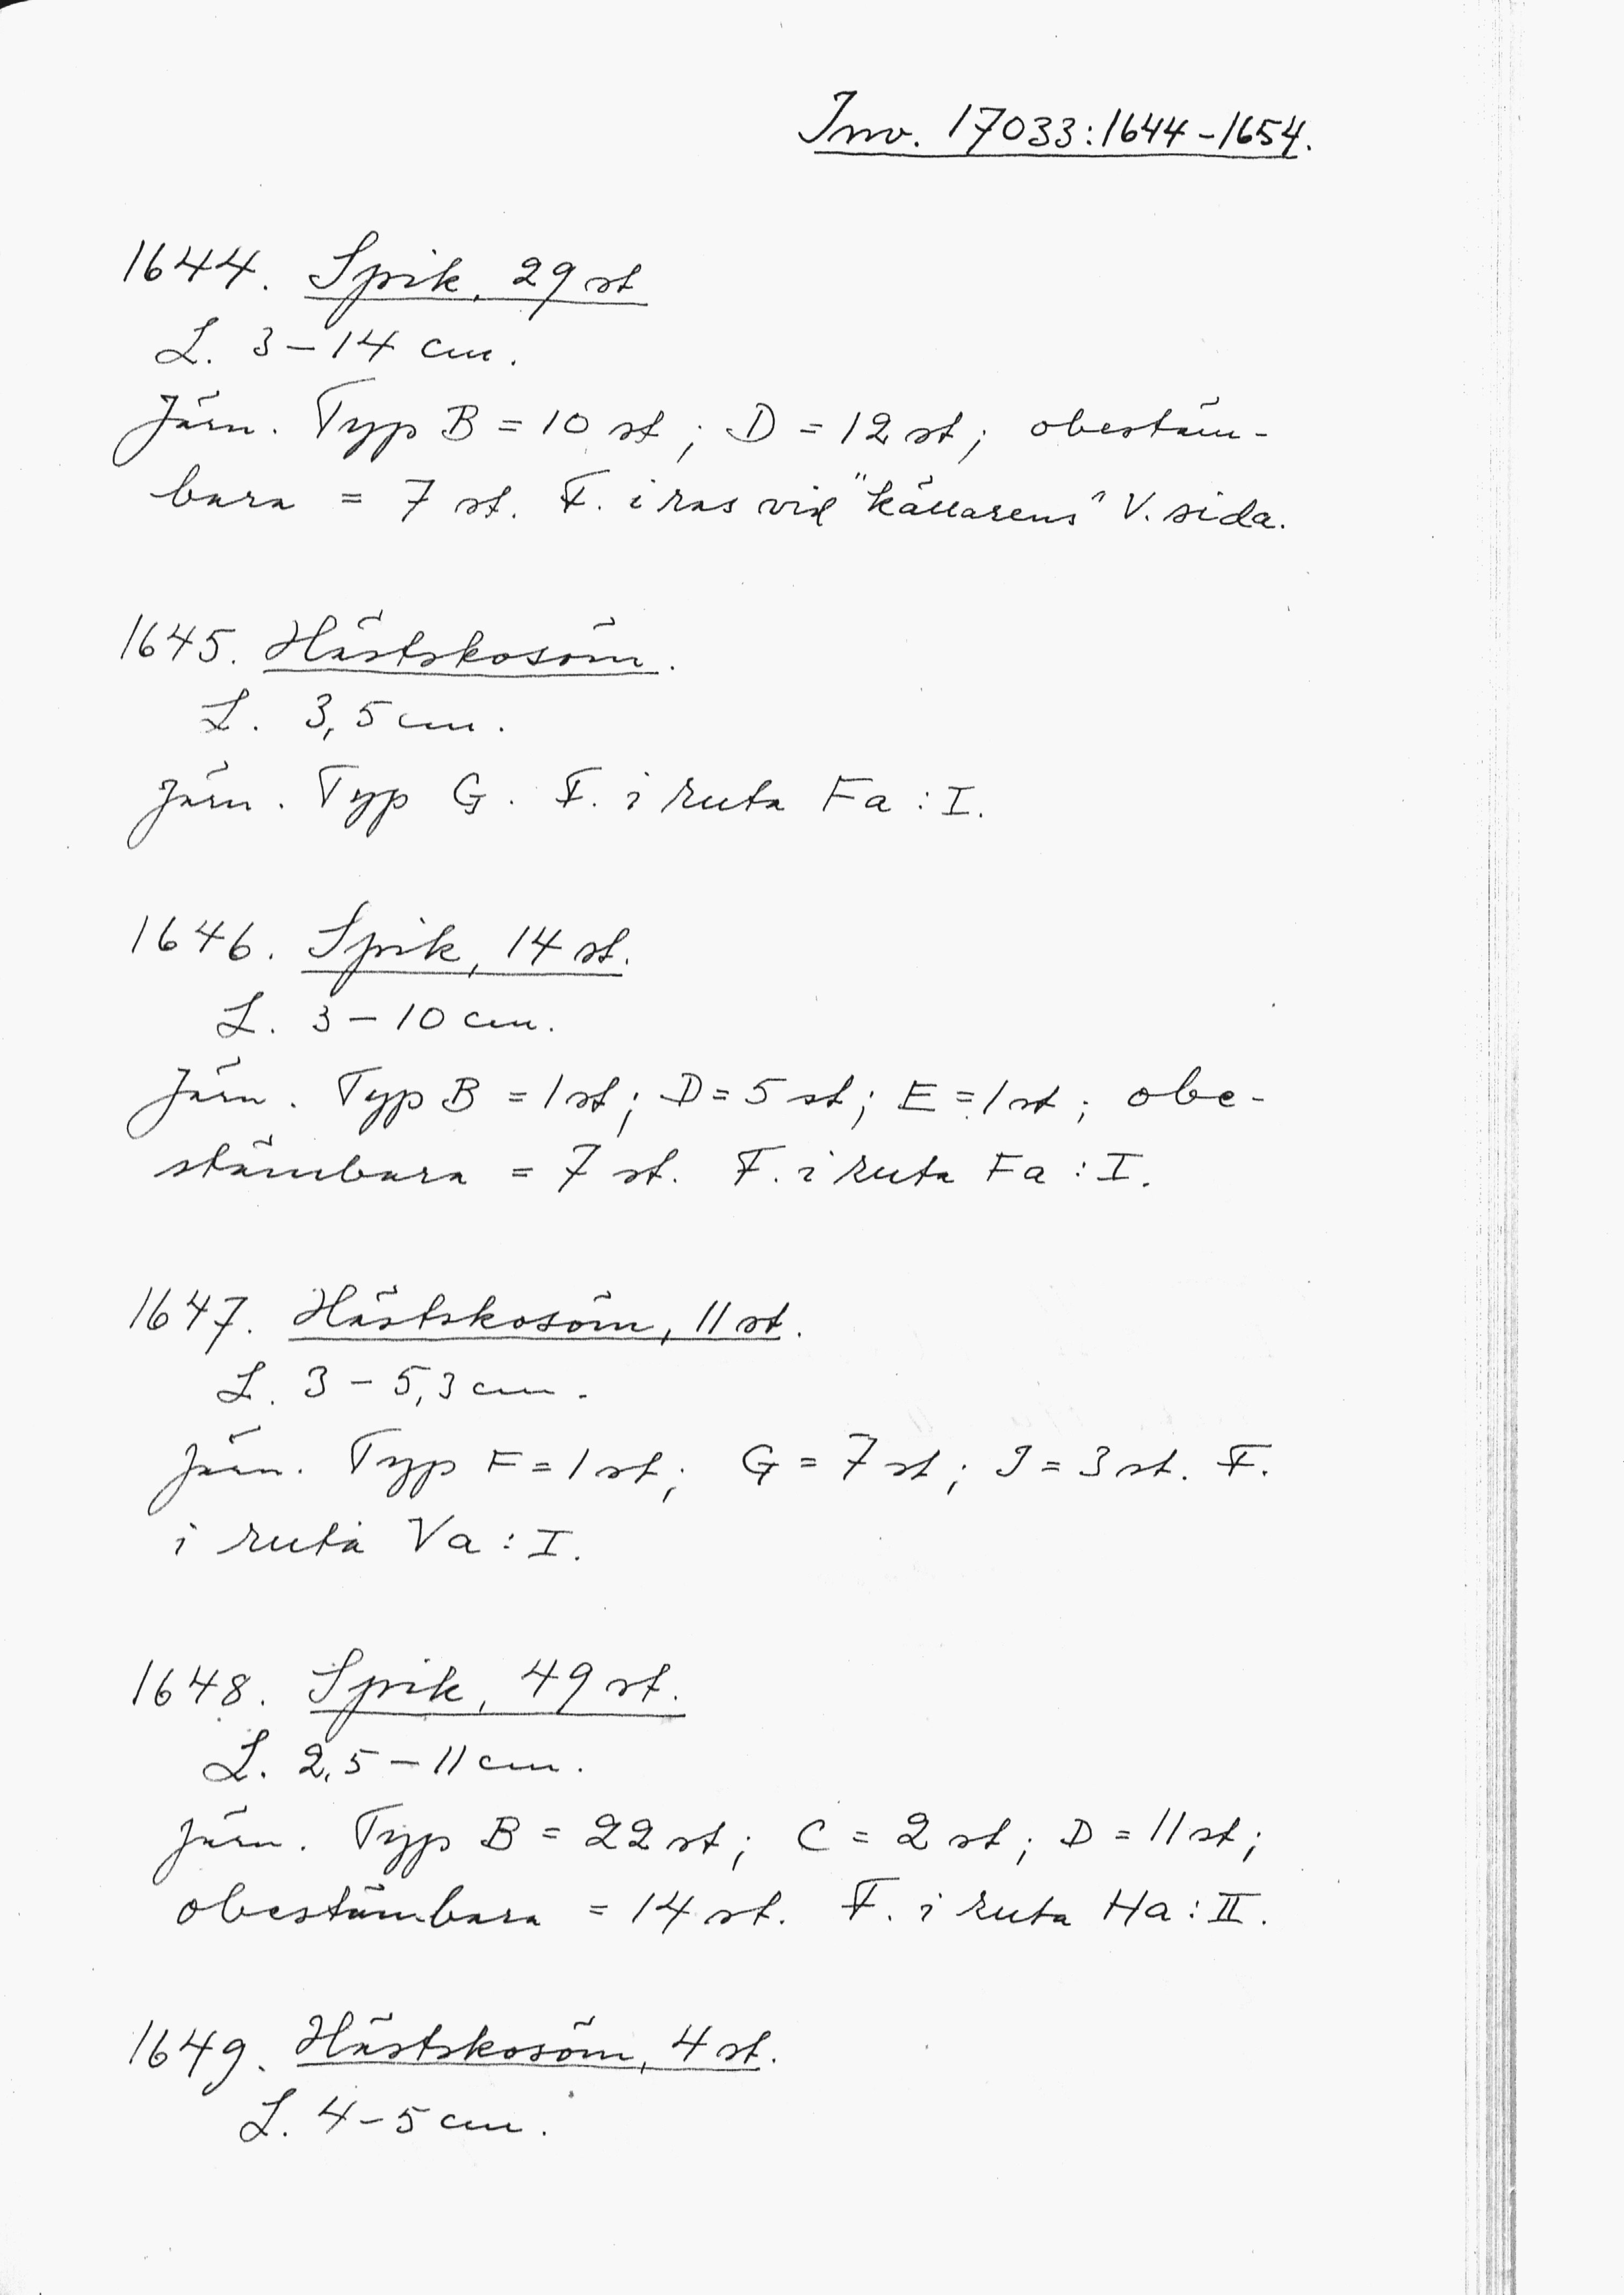 Inv. 17033:1644-1654.
1644. Spik, 29 st
L. 3-14 cm.
Järn. Typ B = 10 st; D = 12 st; obestäm-
bara = 7 st. F. i ras vid "källarens" V. sida.
1645. Hästskosöm.
L. 3,5 cm.
Järn. Typ G. F. i ruta Fa:I.
1646. Spik, 14 st.
L. 3-10 cm.
Järn. Typ B = 1 st; D = 5 st; E = 1 st; obe-
stämbara = 7 st. F. i ruta Fa:I.
1647. Hästskosöm, 11 st.
L. 3-5,3 cm.
Järn. Typ F = 1 st; G = 7 st; J = 3 st. F.
i ruta Va:I.
1648. Spik, 49 st.
L. 2,5-11 cm.
Järn. Typ B = 22 st; C = 2 st; D = 11 st;
obestämbara = 14 st. F. i ruta Ha:II.
1649. Hästskosöm, 4 st.
L. 4-5 cm.